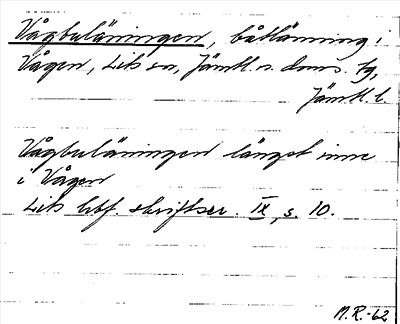 Vågbuläningen, båtlänning i
Vågen, Lits sn, Jämtl. n. doms. tg,
Jämtl. l.
Vågbuläningen längst inne
i Vågen
Lits hbf. skriftser. IX, s. 10.
M.R.-62